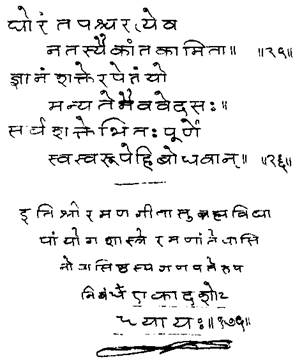 घोरं तपश्चरत्येव
न तस्यैकांतकामिता॥ ॥२५॥
ज्ञानं शक्तेरपेतं यो
मन्यते नैव वेद सः॥
सर्व शक्तेभितः पूर्णे
स्वस्वरूपेहि बोधवान्॥ ॥२६॥
इति श्री रमणगीतासु ब्रह्मविद्या
यां योगशास्त्रे रमणांतेवासि
नो वासिष्ठस्य गणपतेरुप
निबंधे एकादशोऽ
ध्यायः॥